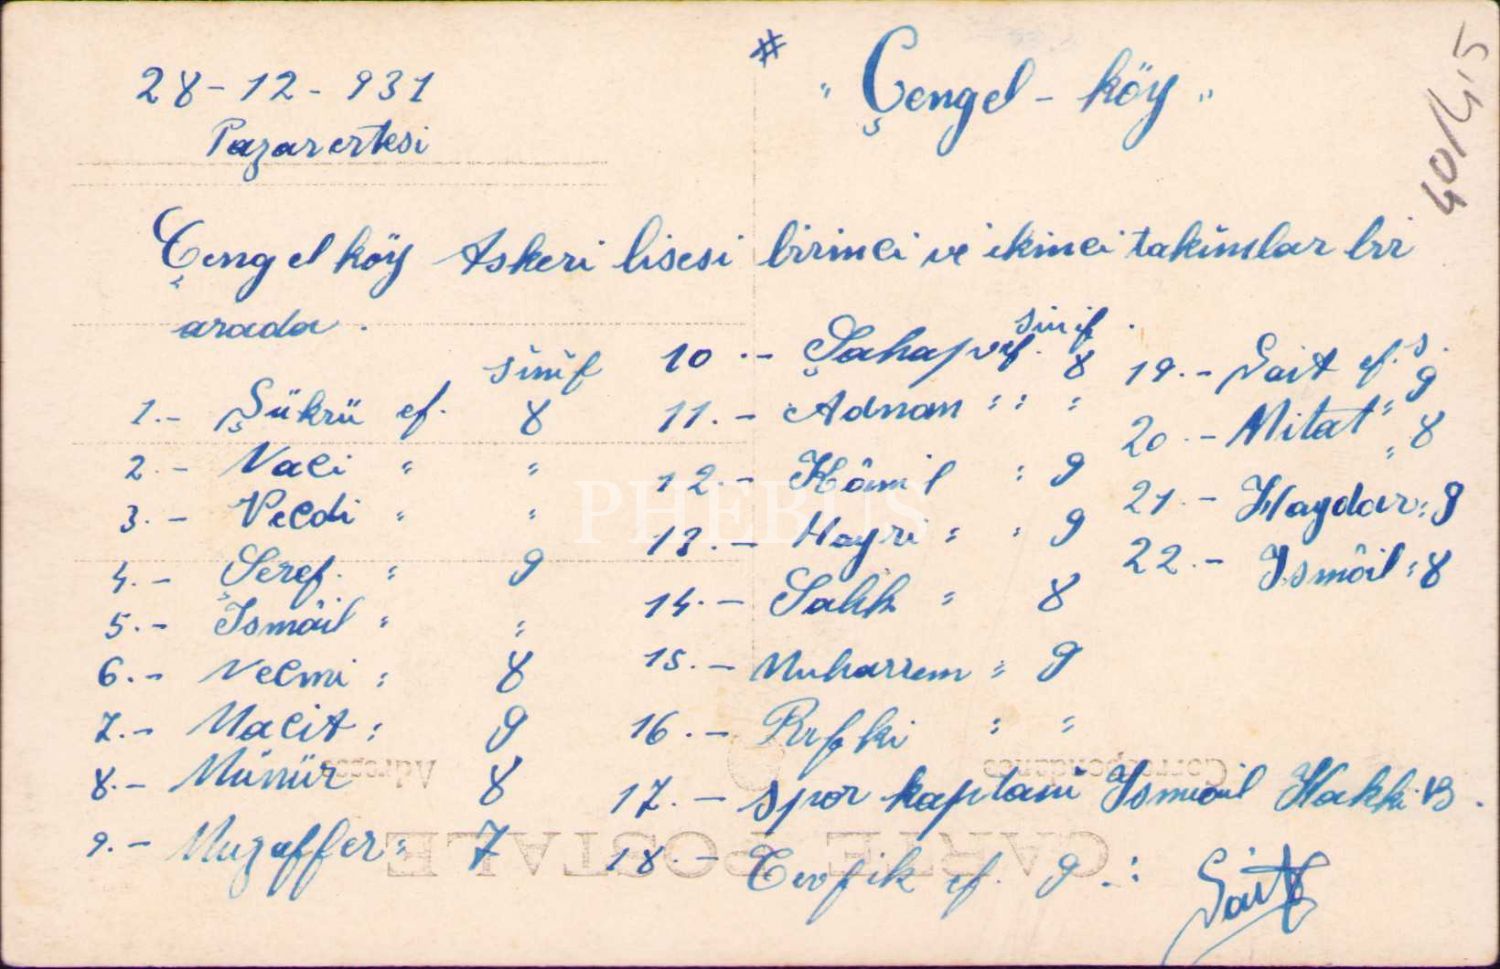 28-12-931
Pazarertesi
# "Çengel-köy"
40/4,5
Çengelköy Askeri lisesi birinci ve ikinci takimlar bir
arada.
sinif
1.- Şükrü ef. 8
2.- Naci " "
3.- Vecdi " "
4.- Şeref. " 9
5.- Ismâil " "
6.- Necmi " 8
7.- Macit " 9
8.- Münür 8
9.- Muzaffer " 7
sinif.
10.- Şahap ef. 8
11.- Adnan " "
12.- Kâmil " 9
13.- Hayri " " 9
14.- Salih " 8
15.- Muharrem " 9
16.- Rıfki " "
17.- spor kaptani Ismail Hakki B.
18.- Tevfik ef. 9
s.
19.- Sait ef. 9
20.- Mitat " 8
21.- Haydar " 9
22.- Ismâil " 8
Sait
PHEBUS
Correspondance
Adresse
CARTE POSTALE